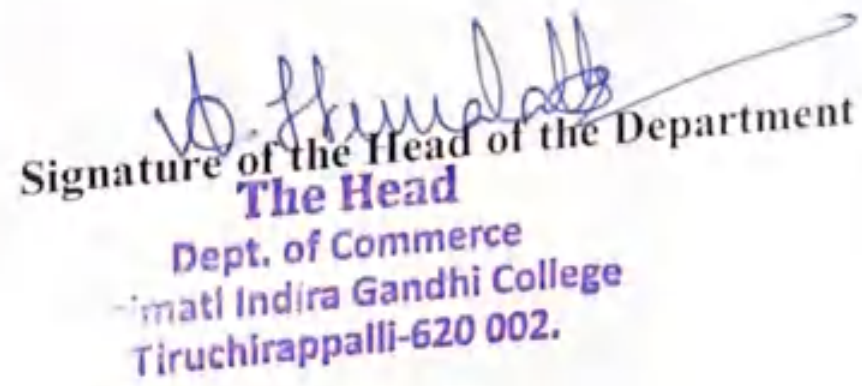 Signature of the Head of the Department
The Head
Dept. of Commerce
imati Indira Gandhi College
Tiruchirappalli-620 002.